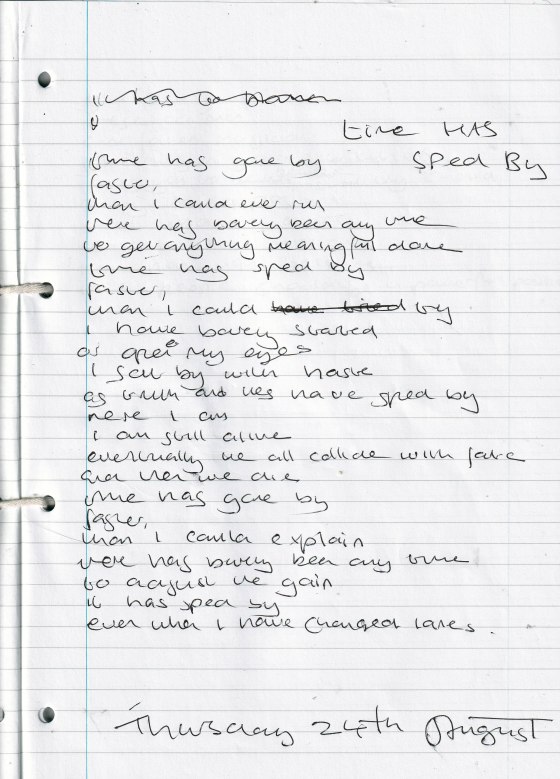 time HAS
SPed By
time has gone by
faster,
than i could ever run
there has barely been any time
to get anything meaningful done
time has sped by
faster,
than i could have tried try
i have barely started
or open my eyes
i sail by with haste
as truth and lies have sped by
here i am
i am still alive
eventually we all collide with fate
and then we die
time has gone by
faster,
than i could explain
there has barely been any time
to adjust the gain
it has sped by
even when i have changed lanes.
Thursday 24th August